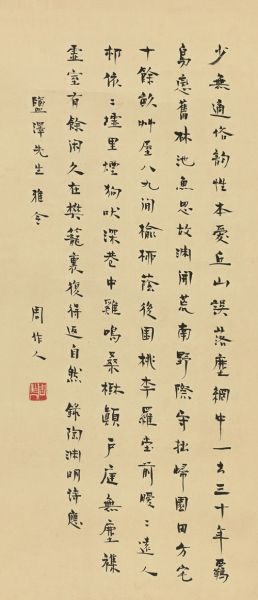 少無適俗韵性本愛丘山誤落塵網中一去三十年羈
鳥戀舊林池魚思故淵開荒南野際守拙歸園田方宅
十餘畝艸屋八九間榆柳蔭後園桃李羅堂前曖〻遠人
邨依〻墟里煙狗吠深巷中雞鳴桑樹顛戶庭無塵襍
虛室有餘閑久在樊籠裏復得返自然 錄陶淵明詩應
鹽澤先生雅令
周作人